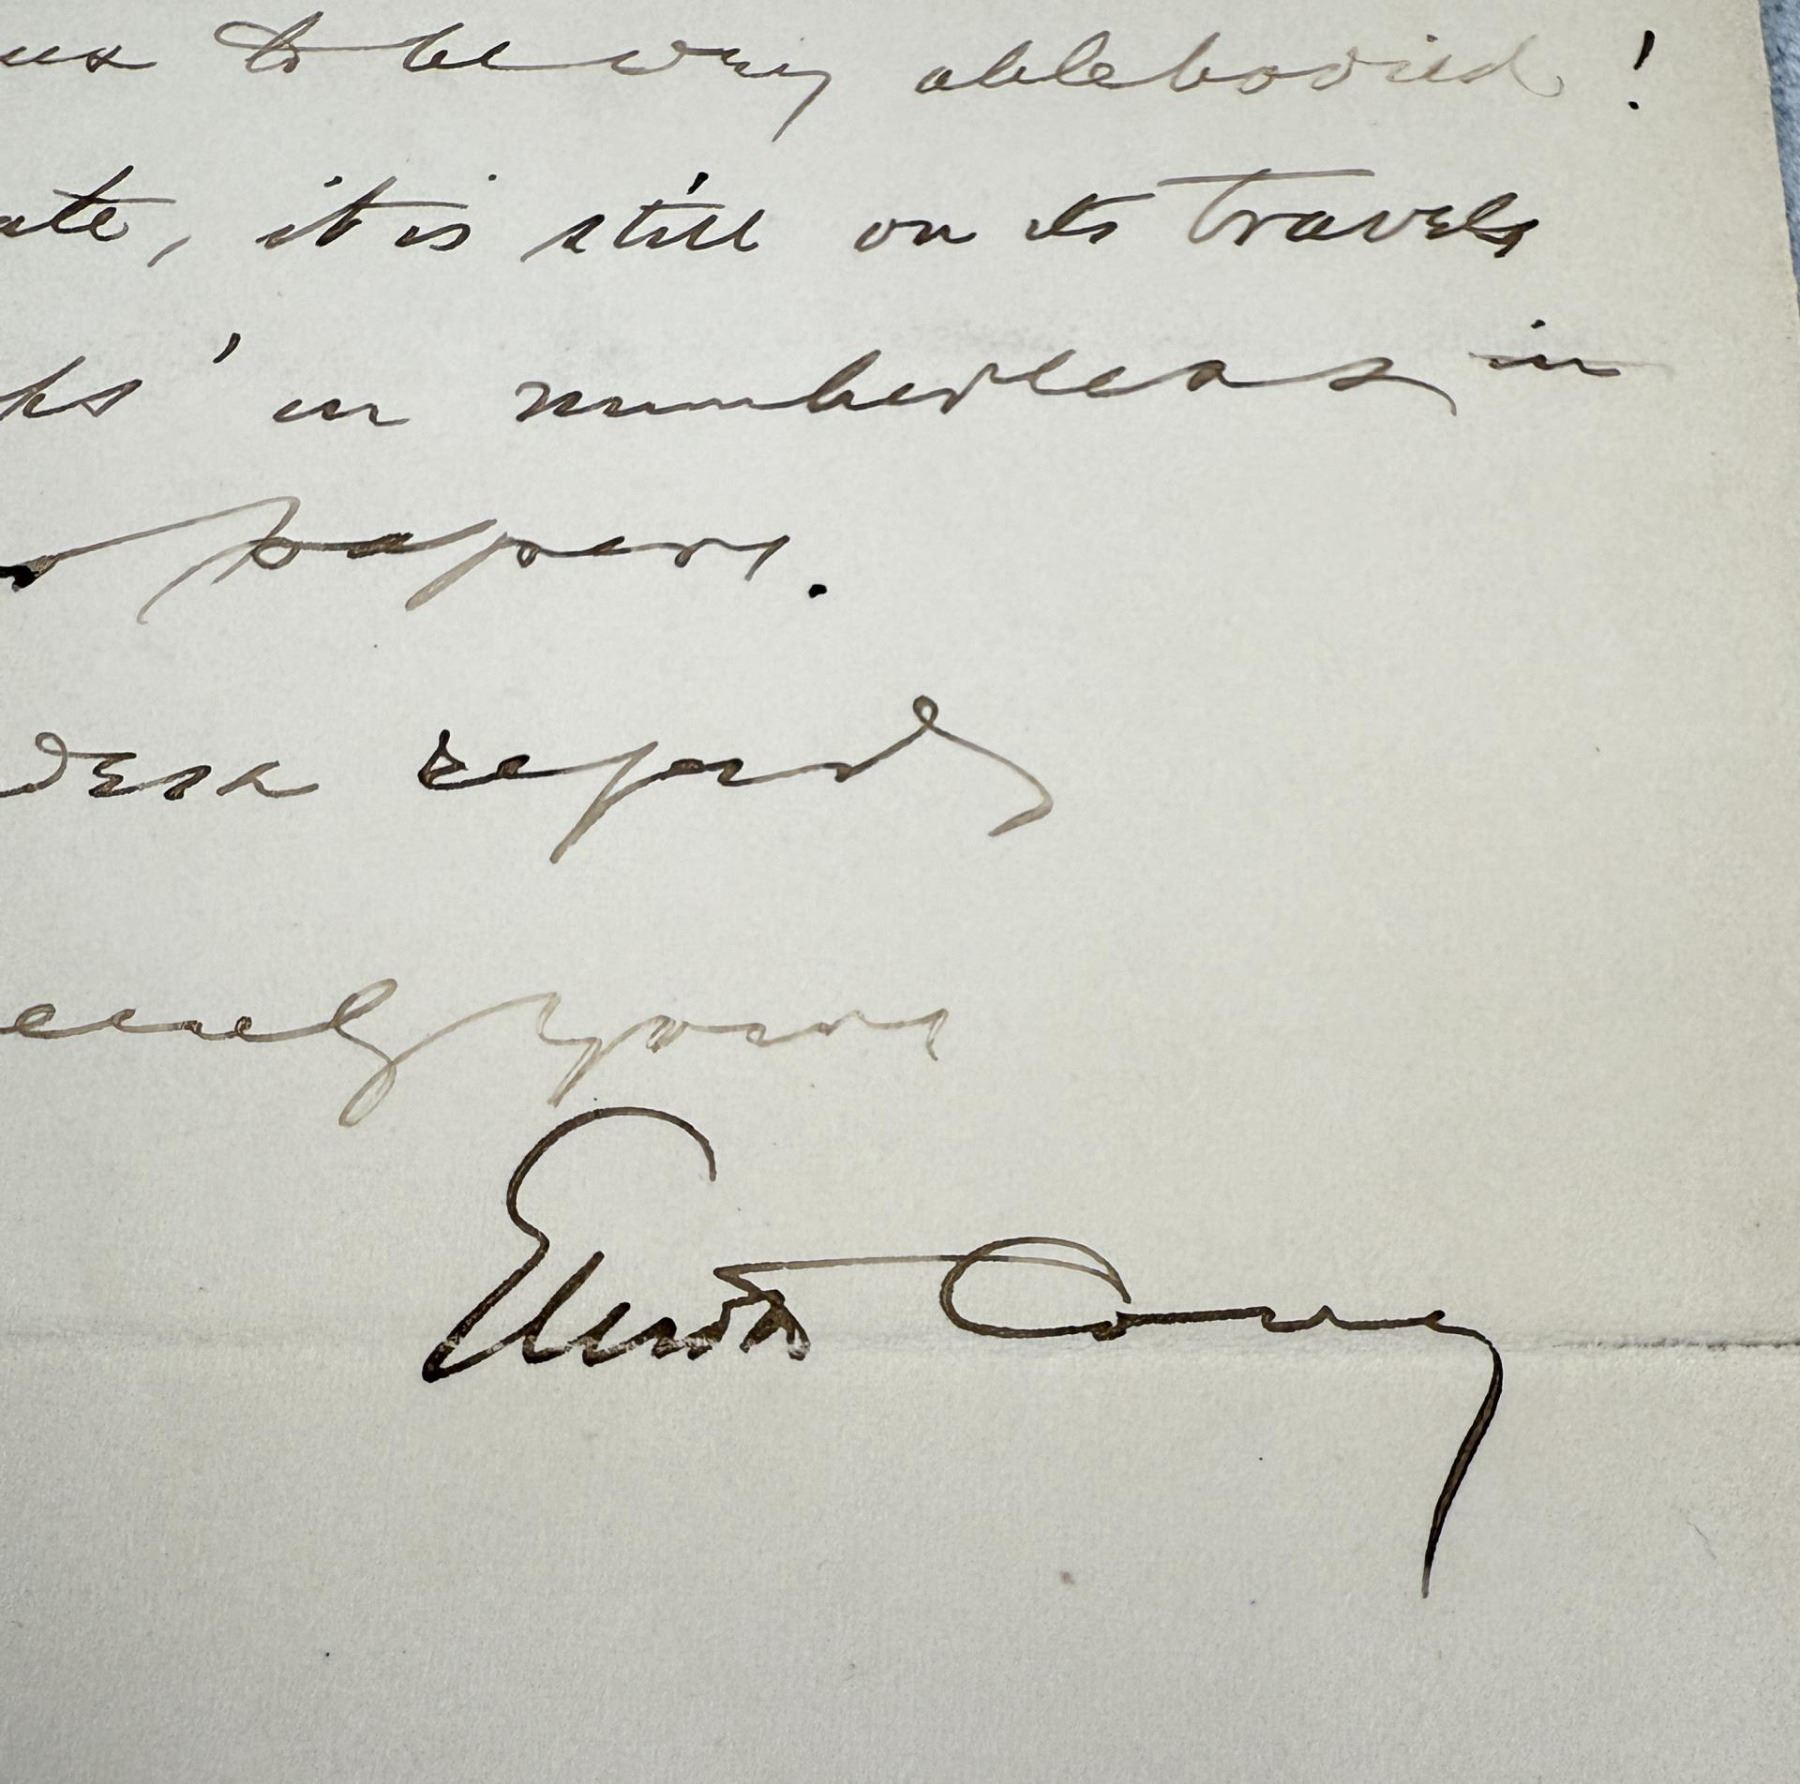 to be very ablebodied!
ate, it is still on its travels
ks' in numberless in
papers.
regards
yours
Elliott Coues